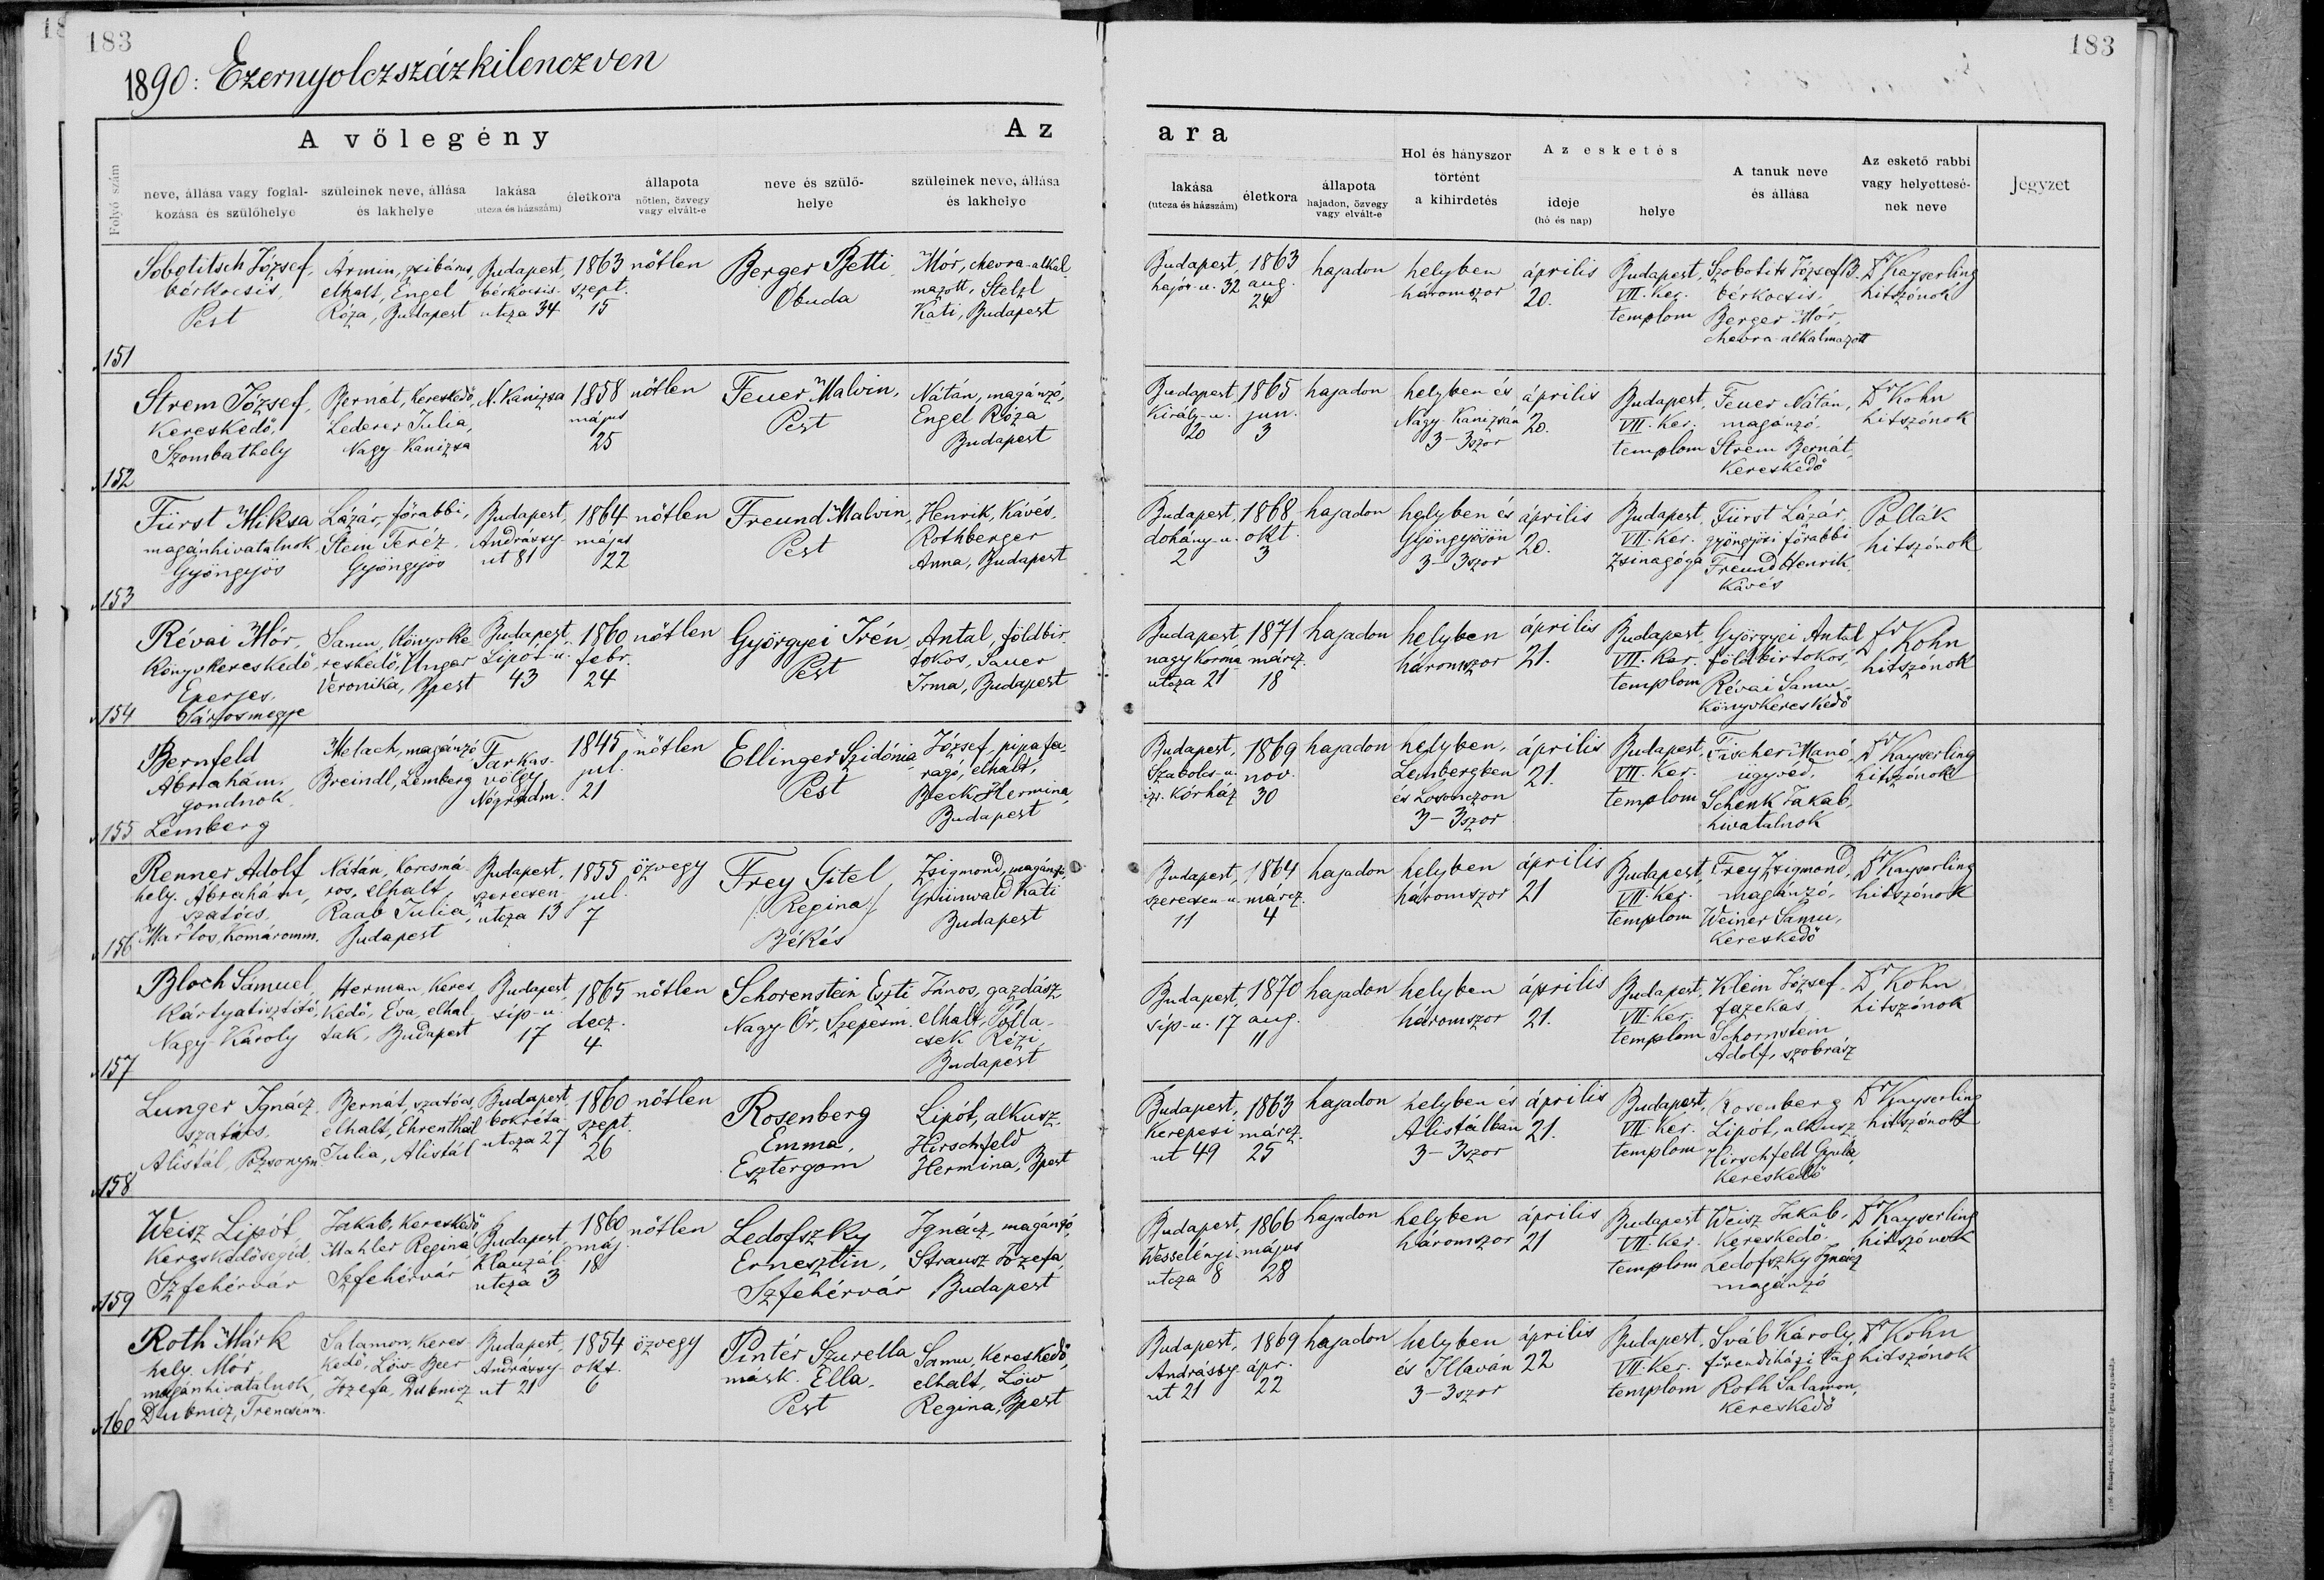 183
183
1890: Ezernyolczszázkilenczven
A vőlegény
Az ara
Folyó szám
neve, állása vagy foglal-
kozása és szülőhelye
szüleinek neve, állása
és lakhelye
lakása
(utcza és házszám)
életkora
állapota
nőtlen, özvegy
vagy elvált-e
neve és szülő-
helye
szüleinek neve, állása
és lakhelye
lakása
(utcza és házszám)
életkora
állapota
hajadon, özvegy
vagy elvált-e
Hol és hányszor
történt
a kihirdetés
Az esketés
ideje
(hó és nap)
helye
A tanuk neve
és állása
Az eskető rabbi
vagy helyettesé-
nek neve
Jegyzet
151
Sobotitsch József,
bérkocsis,
Pest
Ármin, zsibárus,
elhalt, Engel
Róza, Budapest
Budapest,
bérkocsis
utcza 34
1863
szept.
15
nőtlen
Berger Betti
Óbuda
Mór, chevra-alkal
mazott, Stelzl
Káti, Budapest
Budapest,
hajós-u. 32
1863
aug.
24
hajadon
helyben
háromszor
április
20.
Budapest,
VII. ker.
templom
Szobotits József
bérkocsis,
Berger Mór,
chevra-alkalmazott
Dr Kayserling
hitszónok
152
Strem József,
kereskedő,
Szombathely
Bernát, kereskedő,
Lederer Julia,
Nagy-Kanizsa
N. Kanizsa
1858
május
25
nőtlen
Feuer Malvin,
Pest
Nátán, magánzó,
Engel Róza
Budapest
Budapest,
király-u.
20
1865
jun.
3
hajadon
helyben és
Nagy-Kanizsán
3-3szor
április
20.
Budapest,
VII. ker.
templom
Feuer Nátán,
magánzó,
Strem Bernát,
kereskedő
Dr Kohn
hitszónok
153
Fürst Miksa
magánhivatalnok,
Gyöngyös
Lázár, főrabbi,
Stein Teréz,
Gyöngyös
Budapest,
Andrássy-
ut 81
1864
május
22
nőtlen
Freund Malvin,
Pest
Henrik, kávés,
Rothberger
Anna, Budapest
Budapest,
dohány-u.
2
1868
okt.
3
hajadon
helyben és
Gyöngyösön
3-3szor
április
20.
Budapest,
VII. ker.
Zsinagóga
Fürst Lázár,
gyöngyösi főrabbi
Freund Henrik,
kávés
Pollák
hitszónok
154
Révai Mór,
könyvkereskedő,
Eperjes,
Sárosmegye
Samu, könyvke
reskedő, Ungar
Veronika, Bpest
Budapest,
Lipót-u.
43
1860
febr.
24
nőtlen
Györgyei Irén,
Pest
Antal, földbir
tokos, Sauer
Irma, Budapest
Budapest,
nagy korona
utcza 21
1871
márcz.
18
hajadon
helyben
háromszor
április
21.
Budapest,
VII. ker.
templom
Györgyei Antal
földbirtokos,
Révai Samu
könyvkereskedő
Dr Kohn
hitszónok
155
Bernfeld
Abrahám,
gondnok,
Lemberg
Melach, magánzó,
Breindl, Lemberg
Farkas-
völgy,
Nógrádm.
1845
jul.
21
nőtlen
Ellinger Szidónia,
Pest
József, pipafa-
ragó, elhalt,
Beck Hermina,
Budapest
Budapest,
Szabolcs-u.
izr. kórház
1869
nov.
30
hajadon
helyben,
Lembergben
és Losonczon
3-3szor
április
21.
Budapest,
VII. ker.
templom
Fischer Manó,
ügyvéd,
Schenk Jakab,
hivatalnok
Dr Kayserling
hitszónok
156
Renner Adolf
hely. Abrahám,
szatócs,
Martos, Komáromm.
Nátán, korcsmá-
ros, elhalt,
Raab Julia,
Budapest
Budapest,
szerecsen-
utcza 13
1855
jul.
7
özvegy
Frey Gitel
/Regina/
Békés
Zsigmond, magánzó,
Grünwald Káti
Budapest
Budapest,
szerecsen-u.
11
1864
márcz.
4
hajadon
helyben
háromszor
április
21
Budapest,
VII. ker.
templom
Frey Zsigmond,
magánzó,
Weiner Samu,
kereskedő
Dr Kayserling
hitszónok
157
Bloch Sámuel,
kártyatisztító,
Nagy-Károly
Herman, keres
kedő, Éva, elhal
tak, Budapest
Budapest,
síp-u.
17
1865
decz.
4
nőtlen
Schorenstein Eszti
Nagy-Őr, Szepesm.
János, gazdász
elhalt, Polla-
csek Rézi,
Budapest
Budapest,
síp-u. 17
1870
aug.
11
hajadon
helyben
háromszor
április
21.
Budapest,
VII. ker.
templom
Klein József
fazekas
Schornstein
Adolf, szobrász
Dr Kohn
hitszónok
158
Lunger Ignácz
szatócs,
Alistál, Pozsonym.
Bernát, szatócs,
elhalt, Ehrenthal
Julia, Alistál
Budapest,
bokréta
utcza 27
1860
szept.
26
nőtlen
Rosenberg
Emma,
Esztergom
Lipót, alkusz,
Hirschfeld
Hermina, Bpest
Budapest,
kerepesi
ut 49
1863
márcz.
25
hajadon
helyben és
Alistálban
3-3szor
április
21.
Budapest,
VII. ker.
templom
Rosenberg
Lipót, alkusz
Hirschfeld Gyula,
kereskedő
Dr Kayserling
hitszónok
159
Weisz Lipót,
kereskedősegéd,
Szfehérvár
Jakab, kereskedő
Mahler Regina,
Szfehérvár
Budapest,
Klauzál-
utcza 3
1860
máj.
18
nőtlen
Ledofszky
Ernesztin,
Szfehérvár
Ignácz, magánzó,
Strausz Jozefa,
Budapest
Budapest,
Wesselényi-
utcza 8
1866
május
28
hajadon
helyben
háromszor
április
21
Budapest
VII. ker.
templom
Weisz Jakab,
kereskedő,
Ledofszky Ignácz
magánzó
Dr Kayserling
hitszónok
160
Roth Márk
hely. Mór,
magánhivatalnok,
Dubnicz, Trencsénm.
Salamon, keres-
kedő, Löw Beer
Jozefa, Dubnicz
Budapest,
Andrássy-
ut 21
1854
okt.
6
özvegy
Pintér Szurella
másk. Ella,
Pest
Samu, kereskedő,
elhalt, Löw
Regina, Bpest
Budapest,
Andrássy-
ut 21
1869
ápr.
22
hajadon
helyben
és Illaván
3-3szor
április
22
Budapest,
VII. ker.
templom
Sváb Károly,
főrendiházi tag
Roth Salamon,
kereskedő
Dr Kohn
hitszónok